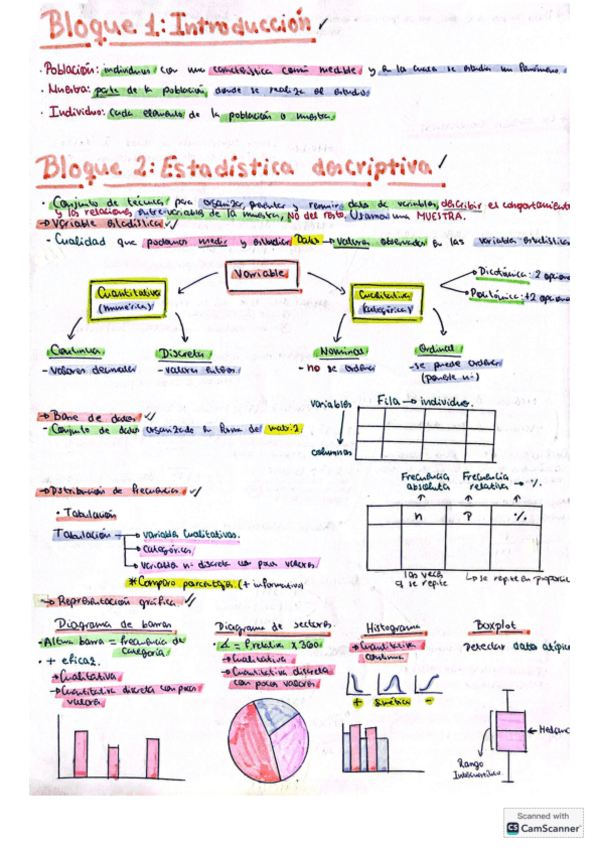 Bloque 1: Introducción
· Población: individuos con una característica común medible y en la cual se estudia un fenómeno.
· Muestra: parte de la población, donde se realiza el estudio.
· Individuo: cada elemento de la población o muestra.
Bloque 2: Estadística descriptiva
· Conjunto de técnicas para organizar, presentar y resumir datos de variables, describir el comportamiento
y las relaciones entre variables de la muestra, NO del resto. Usamos una MUESTRA.
→ Variable estadística
- Cualidad que podemos medir y estudiar Datos → valores observados en las variables estadísticas
Variable
Cuantitativa
(numérica)
Cualitativa
(categórica)
→ Dicotómica: 2 opcione
→ Politómica: +2 opcione
Continua
- valores decimales
Discreta
- valores enteros
Nominal
- no se ordena
Ordinal
- se puede ordenar
(ponerle nº)
→ Base de datos
- Conjunto de datos organizado en forma de matriz.
variables
columnas
Fila → individuo.
→ Distribución de frecuencias
· Tabulación
Tabulación → variables cualitativas.
→ categóricas
→ variables nº discreta con pocos valores.
* Comparo porcentajes. (+ informativo)
Frecuencia absoluta
Frecuencia relativa → %
n
P
%
las veces q se repite
↳ se repite en proporció
→ Representación gráfica
Diagrama de barras
· Altura barra = frecuencia de categoría.
· + eficaz.
→ Cualitativa
→ Cuantitativa discreta con pocos valores
Diagrama de sectores
· ∡ = Frelativa x 360
→ Cualitativa
→ Cuantitativa discreta con pocos valores
Histograma
→ Cuantitativa continua
+ simétrica -
Boxplot
Detectar datos atípic
← Mediana
Rango Intercuartílico
Scanned with
CS CamScanner